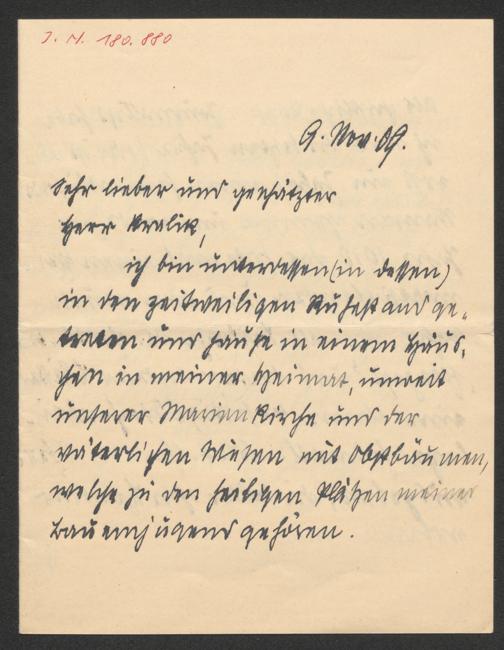 I. N. 180.880
9. Nov. 09.
Sehr lieber und geschätzter
Herr Kralik,
ich bin unterdessen (in dessen)
in den zeitweiligen Ruhestand ge-
treten und hause in einem Häus-
chen in meiner Heimat, unweit
unserer Marienkirche und der
väterlichen Wiesen mit Obstbäumen,
welche zu den heiligen Plätzen meiner
Bauernjugend gehören.